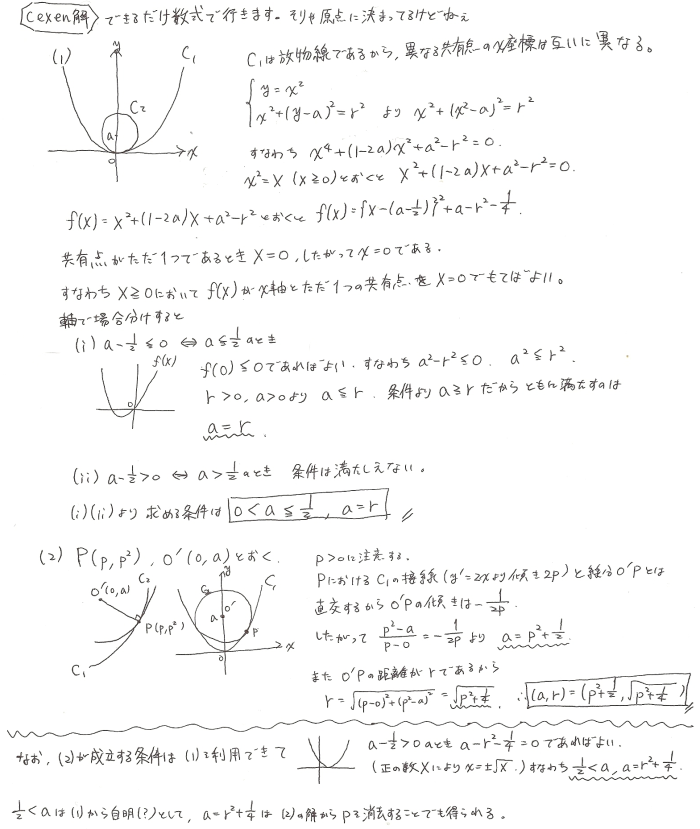 cexen解 できるだけ数式で行きます。そりゃ原点に決まってるけどねぇ
(1) y C₁ C₂ a 0 x
C₁は放物線であるから, 異なる共有点のx座標は互いに異なる。
{ y = x²
x²+(y-a)²=r² より x²+(x²-a)²=r²
すなわち x⁴+(1-2a)x²+a²-r²=0.
x²=X (X≧0)とおくと X²+(1-2a)X+a²-r²=0.
f(X)=X²+(1-2a)X+a²-r²とおくと f(X)={X-(a-1/2)}²+a-r²-1/4.
共有点がただ1つであるとき X=0, したがってx=0である.
すなわち X≧0において f(X)がx軸とただ1つの共有点を X=0でもてばよい。
軸で場合分けすると
(i) a-1/2≦0 ⇔ a≦1/2のとき
f(X) 0
f(0)≦0であればよい. すなわち a²-r²≦0. a²≦r².
r>0, a>0より a≦r. 条件より a≧r だからともに満たすのは
a=r.
(ii) a-1/2>0 ⇔ a>1/2のとき 条件は満たしえない。
(i)(ii)より 求める条件は 0<a≦1/2, a=r
(2) P(p, p²), O'(0, a)とおく. p>0に注意する.
O'(0,a) C₂ P(p,p²) C₁
y C₂ C₁ a O' P 0 x
PにおけるC₁の接線(y'=2xより傾き2p)と線分O'Pとは
直交するからO'Pの傾きは-1/2p.
したがって (p²-a)/(p-0) = -1/2p より a=p²+1/2.
また O'Pの距離がrであるから
r=√((p-0)²+(p²-a)²)=√(p²+1/4). ∴(a,r)=(p²+1/2, √(p²+1/4))
なお, (2)が成立する条件は(1)を利用できて
a-1/2>0のとき a-r²-1/4=0であればよい.
(正の数Xにより x=±√X.) すなわち 1/2<a, a=r²+1/4.
1/2<aは(1)から自明(?)として, a=r²+1/4は(2)の解からpを消去することでも得られる.